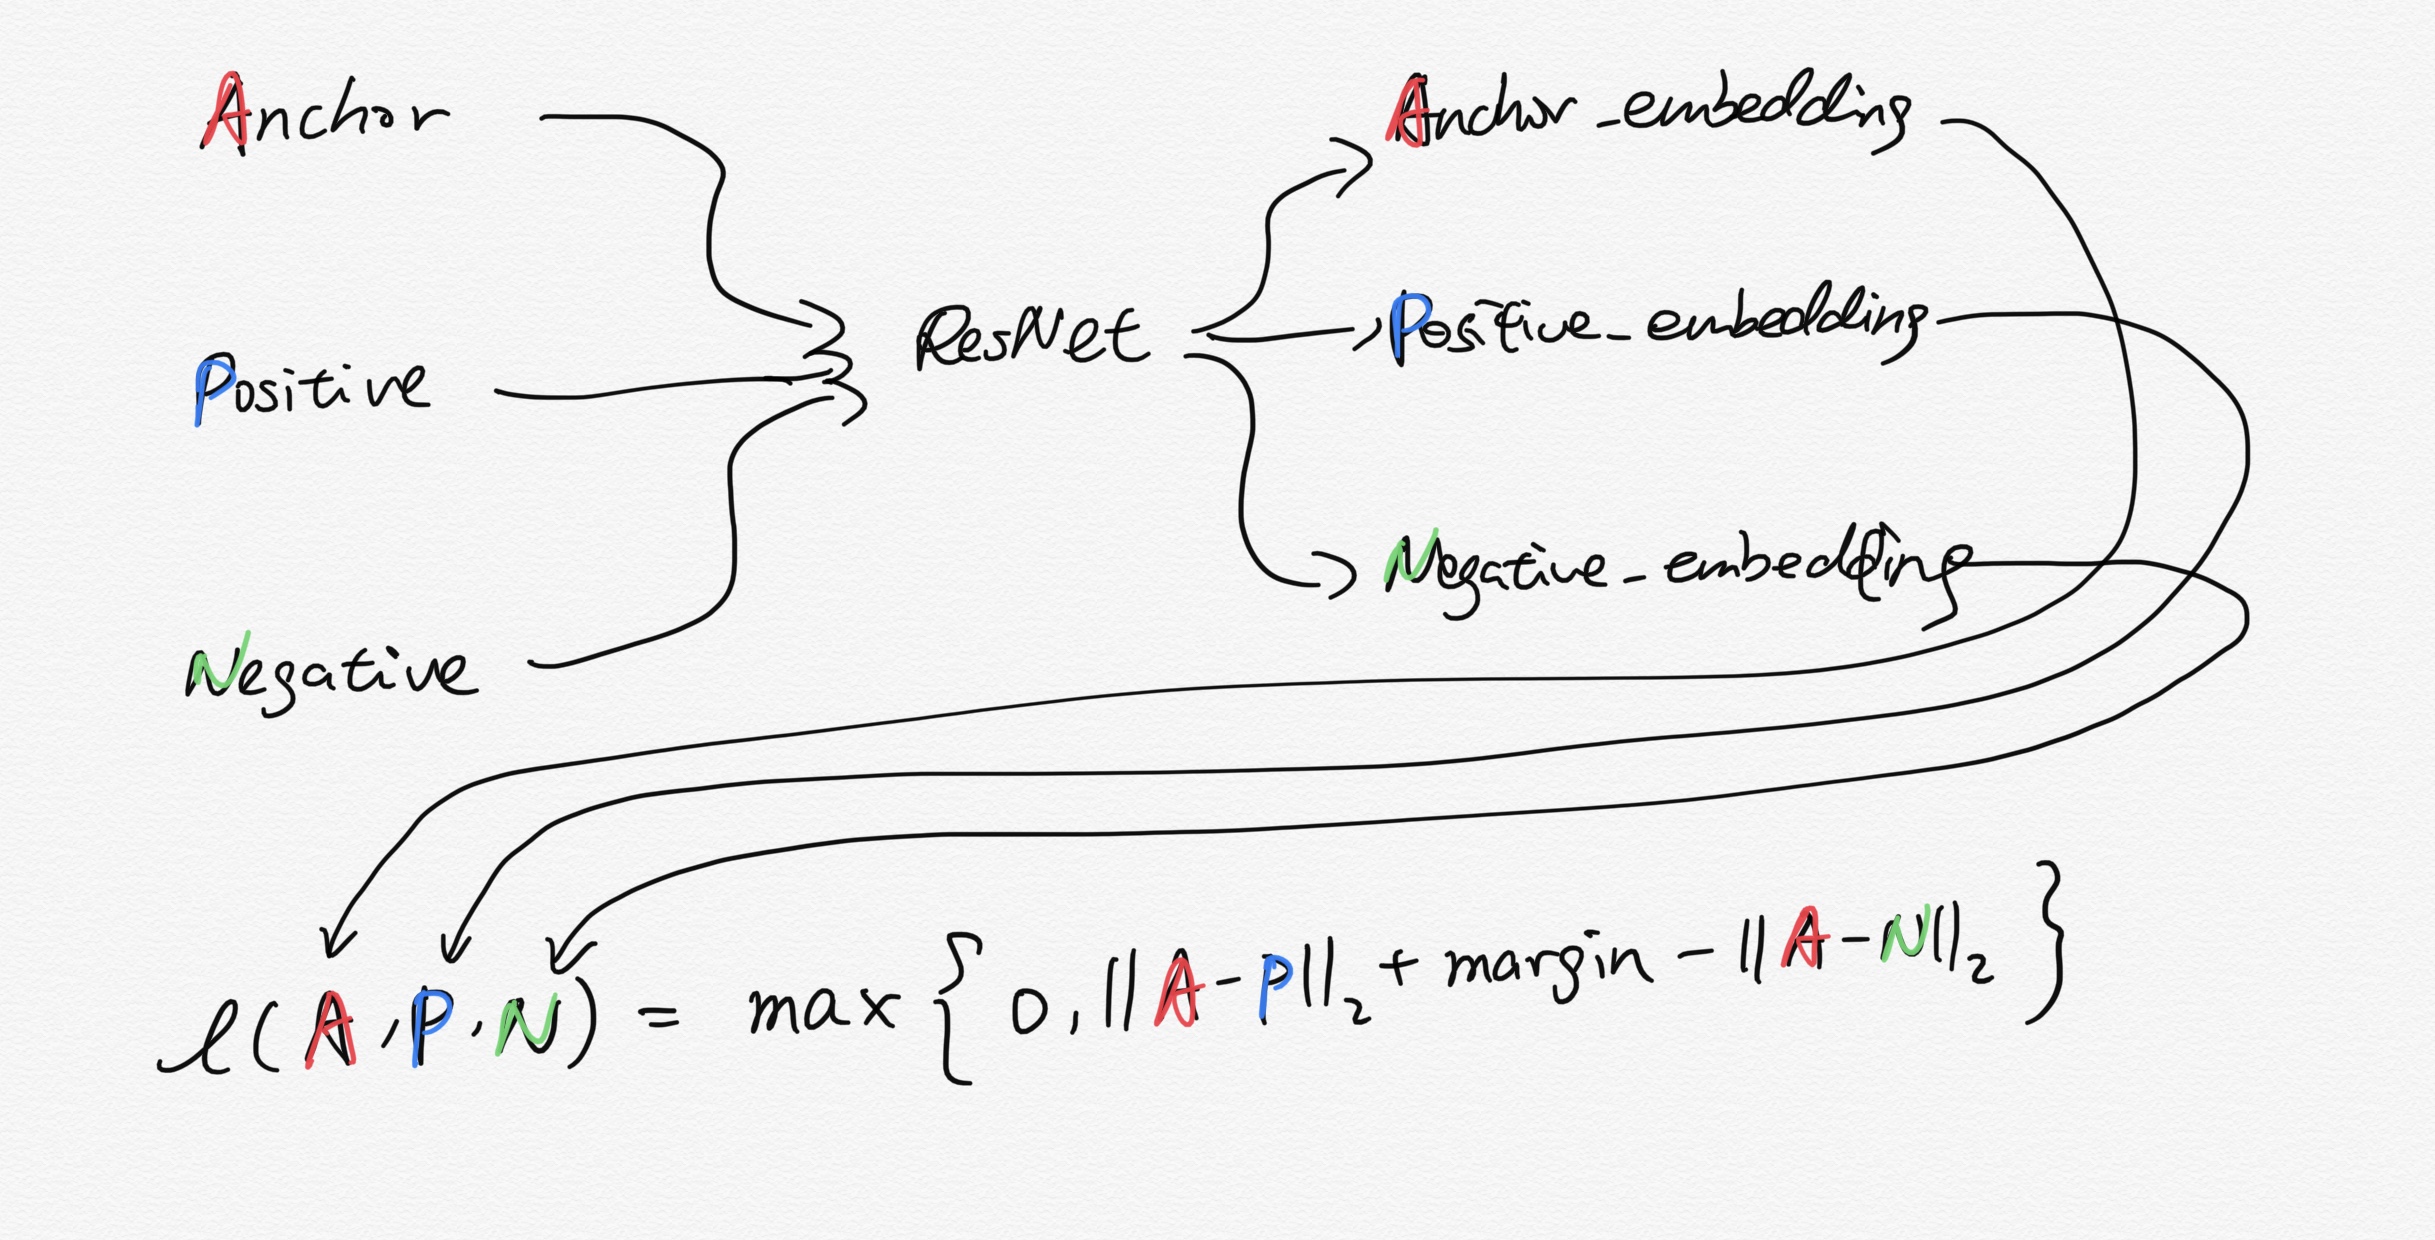 Anchor
Positive
Negative
ResNet
Anchor_embedding
Positive_embedding
Negative_embedding
ℓ(A,P,N) = max{0,||A-P||₂+margin-||A-N||₂}